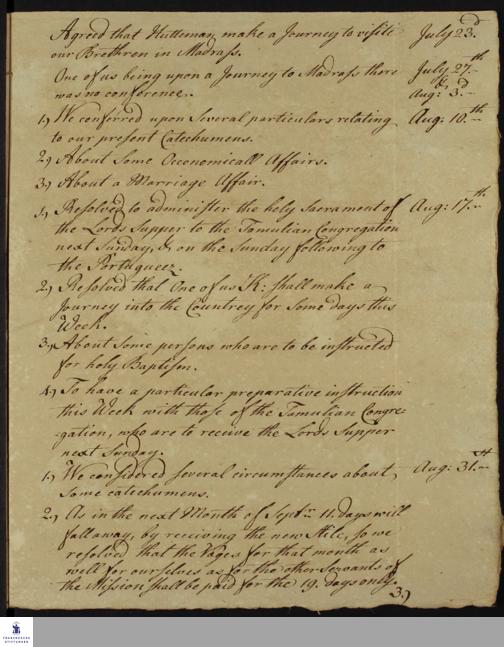 Agreed that Hutteman make a Journey to visite July 23.d
our Brethren in Madrass.
One of us being upon a Journey to Madrass there July 27.th
was no conference. & Aug: 3.d
1.) We conferred upon Several particulars relating Aug: 10.th
to our present Catechumens.
2.) About Some Oeconomicall Affairs.
3.) About a Marriage Affair.
1.) Resolved to administer the holy Sacrament of Aug: 17.th
the Lords Supper to the Tamulian Congregation
next Sunday, & on the Sunday following to
the Portugueez.
2.) Resolved that One of us K: shall make a
Journey into the Countrey for Some days this
Week.
3.) About Some persons who are to be instructed
for holy Baptism.
4.) To have a particular preparative instruction
this Week with those of the Tamulian Congre=
gation, who are to receive the Lords Supper
next Sunday.
1.) We considered several circumstances about Aug: 31.st
Some catechumens.
2.) As in the next Month of Septbr 11. days will
fall away, by receiving the new Stile, so we
resolved that the Vages for that month as
well for ourselves as for the other Servants of
the Mission shall be paid for the 19. days only.
3.)
FRANCKESCHE
STIFTUNGEN